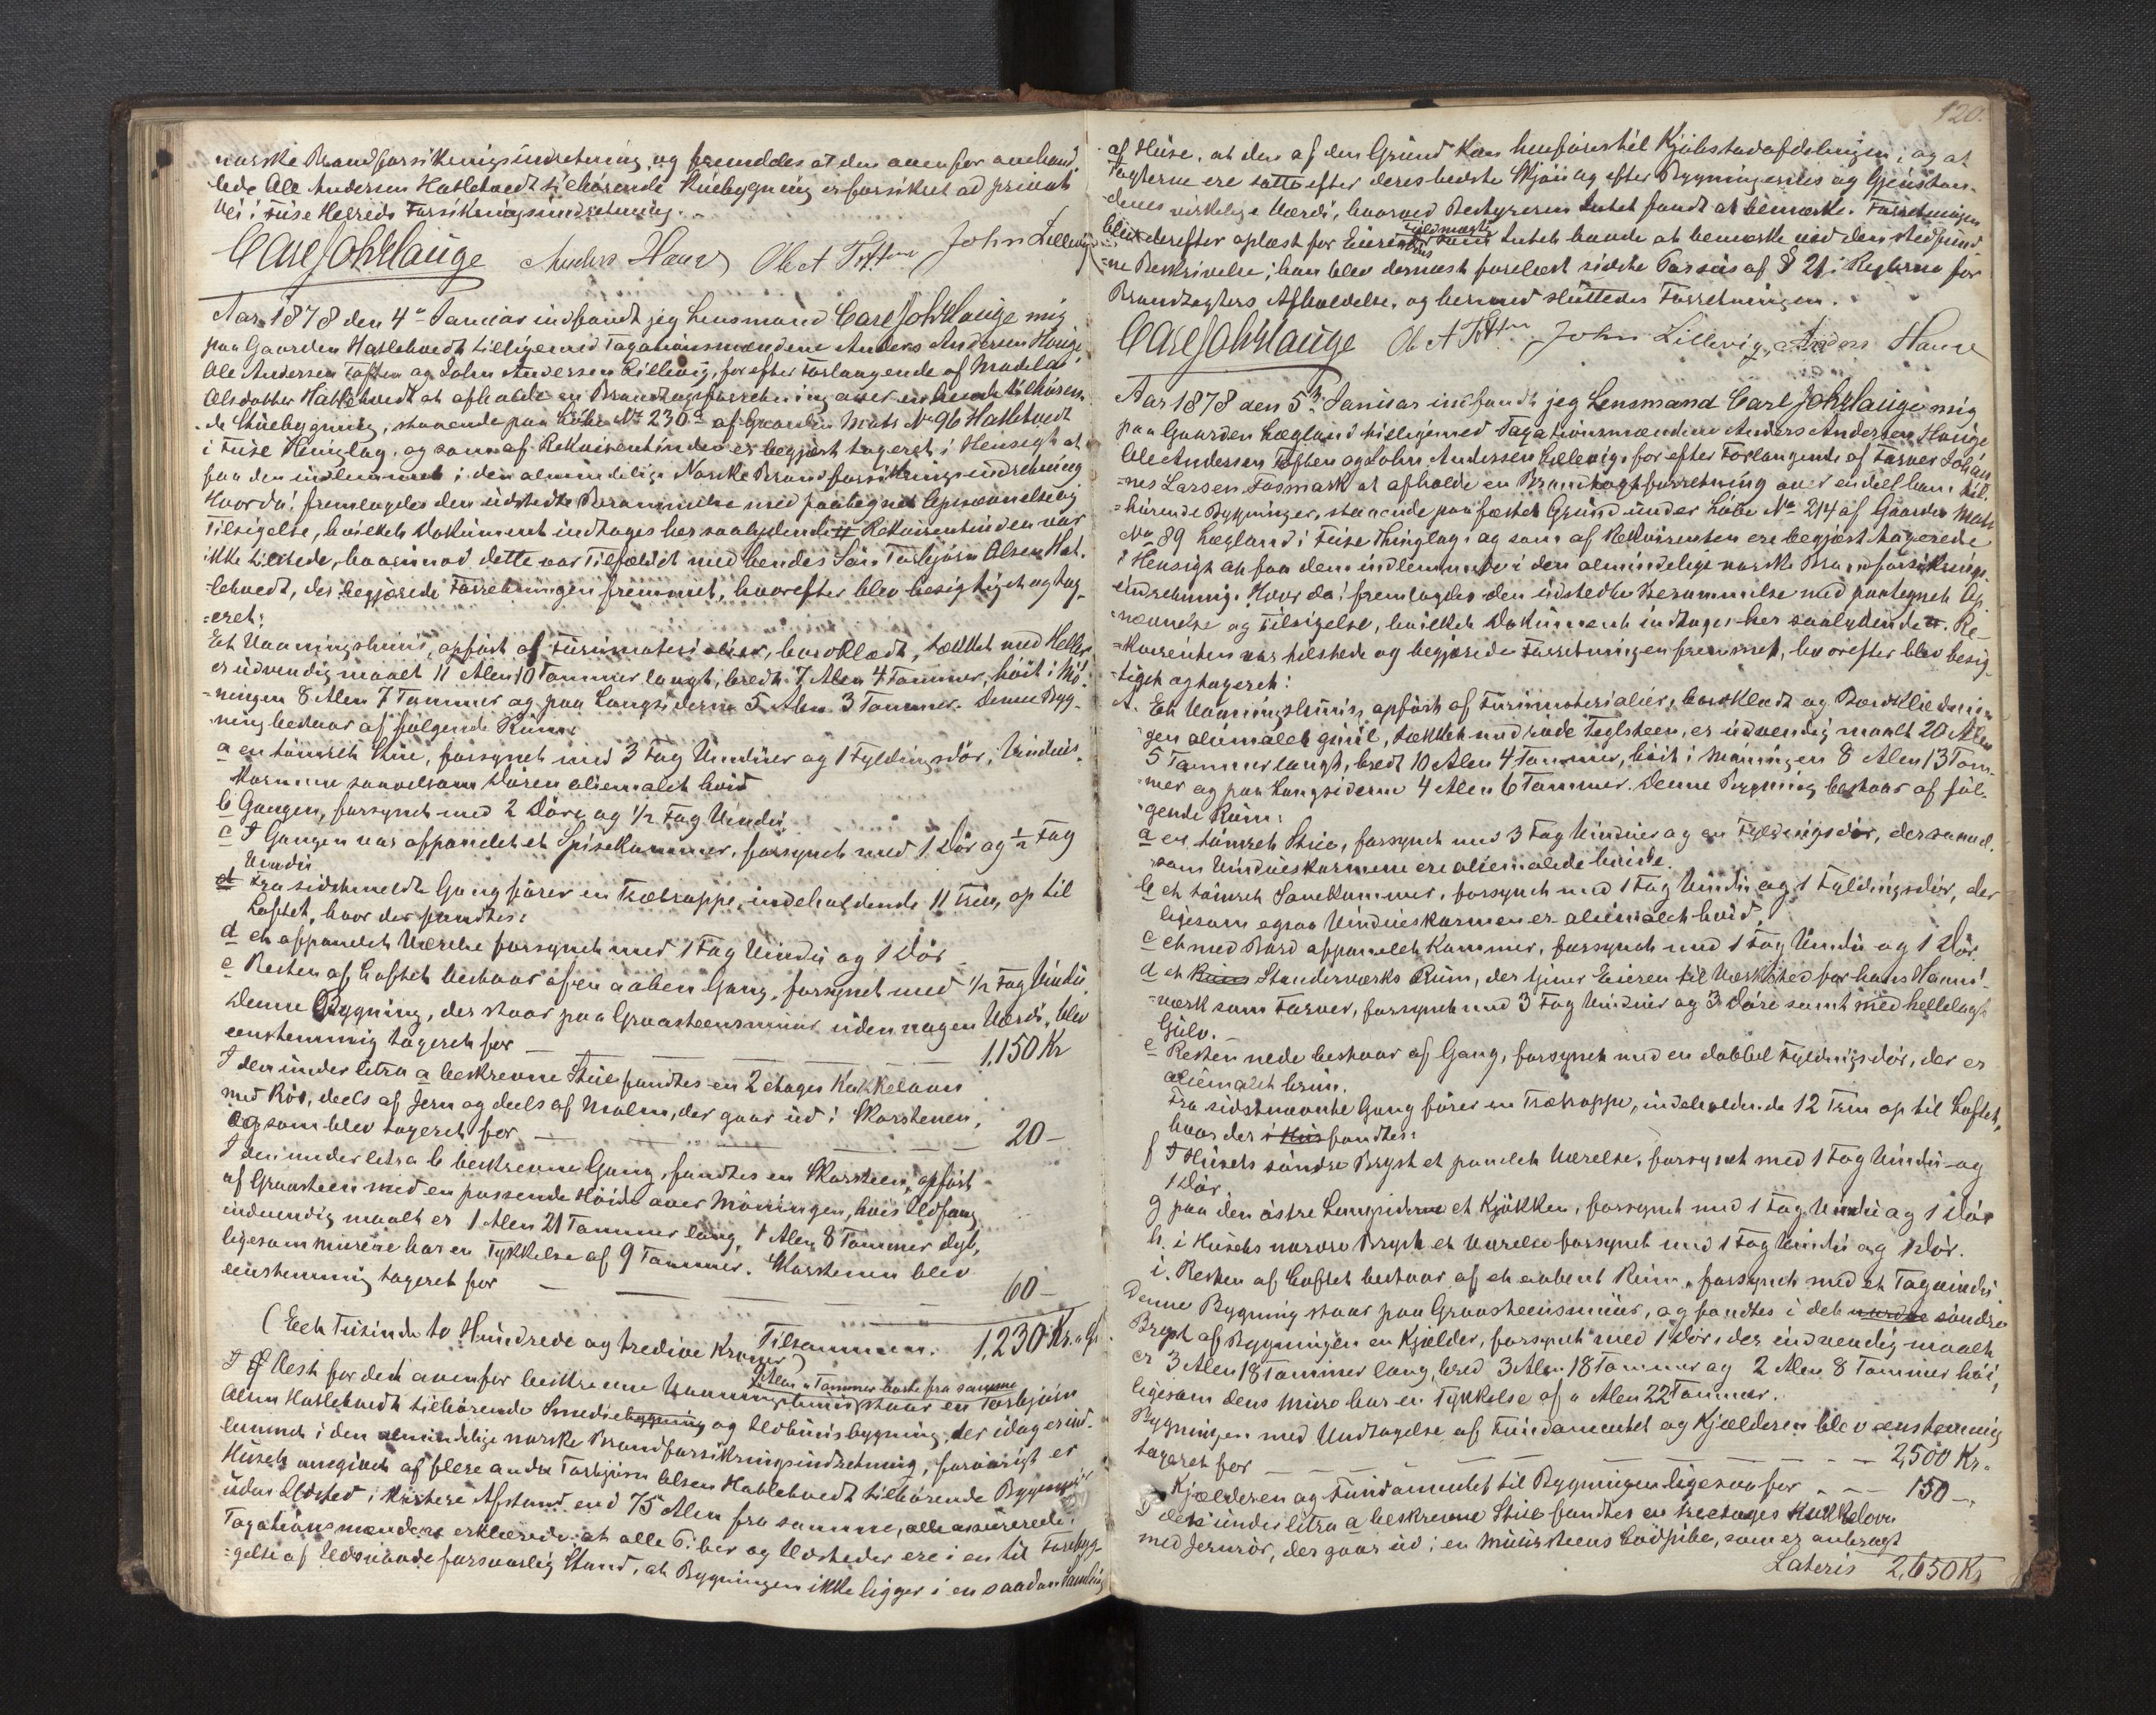 norske Brandforsikringsindretning, og formeldes at den ovenfor omhand-
lede Ole Andersen Hatlehvedt tilhørende Stuebygning er forsikret ad privat
Vei i Fuse Herreds Forsikringsindretning.
Carl Joh Hauge Anders Hauge Ole A Toften John Lillevig
Aar 1878 den 4de Januar indfandt jeg Lensmand Carl Joh Hauge mig
paa Gaarden Hatlehvedt tilligemed Taxationsmændene Anders Andersen Hauge,
Ole Andersen Toften og John Andersen Lillevig, for efter Forlangende af Madela
Olsdatter Hatlehvedt at afholde en Brandtaxtforretning over en hende tilhøren-
de Stuebygning, staaende paa Løbe No 230a af Gaarden Matr No 96 Hatlehvedt
i Fuse Thinglag, og som af Rekvirentinden er begjært taxeret i Hensigt at
faa den indlemmet i den almindelige Norske Brandforsikringsindretning
Hvorda! fremlagdes den udstedte Berammelse med paategnet Opnævnelse og
Tilsigelse, hvilket Dokument indtages her saalydende # Rekvirentinden var
ikke tilstede, hvorimod dette var Tilfældet med hendes Søn Torbjørn Olsen Hat-
lehvedt, der begjærede Forretningen fremmet, hvorefter blev besigtiget og tax-
eret:
Et Vaaningshuus, opført af Furumaterialier, bordklædt, tækket med Heller
er udvendig maalt 11 Alen 10 Tommer langt, bredt 7 Alen 4 Tommer, høit i Mø-
ningen 8 Alen 7 Tommer og paa Langsiderne 5 Alen 3 Tommer. Denne Byg-
ning bestaar af følgende Rum:
a en tømret Stue, forsynet med 3 Fag Vinduer og 1 Fyldingsdør, Vindues-
karmene saavelsom Døren oliemalet hvid
b Gangen, forsynet med 2 Døre og 1/2 Fag Vindu
c I Gangen var afpanelet et Spisekammer, forsynet med 1 Dør og 1/2 Fag
Vindu
d Fra sidstmeldte Gang fører en Trætrappe, indeholdende 11 Trin, op til
Loftet, hvor der fandtes:
d et afpanelet Værelse forsynet med 1 Fag Vindu og 1 Dør
e Resten af Loftet bestaar af en aaben Gang, forsynet med 1/2 Fag Vindu.
Denne Bygning, der staar paa Graasteensmuur uden nogen Værdi, blev
eenstemmig taxeret for — — — — 1,150 Kr
I den under litra a beskrevne Stue fandtes en 2 etages Kakkelovn
med Rør, deels af Jern og deels af Malm, der gaar ud i Skorstenen,
og som blev taxeret for — — — — 20 —
I den under litra b beskrevne Gang, fandtes en Skorsteen, opført
af Graasteen med en passende Høide over Møningen, hvis Ildfang
indvendig maalt er 1 Alen 21 Tommer lang, 1 Alen 8 Tommer dyb,
ligesom murene har en Tykkelse af 9 Tommer. Skorstenen blev
eenstemmig taxeret for — — — — 60 —
Tilsammen. 1,230 Kr.
(Eet Tusinde to Hundrede og tredive Kroner)
2 Alen " Tommer borte fra samme
I Øst for det ovenfor beskrevne Vaaningshuus staar en Torbjørn
Olsen Hatlehvedt tilhørende Smediebygning og Ildhuusbygning, der idag er ind-
lemmet i den almindelige norske Brandforsikringsindretning, forøvrigt er
Huset omgivet af flere andre Torbjørn Olsen Hatlehvedt tilhørende Bygninger
uden Ildsted i kortere Afstand end 75 Alen fra samme, alle assurerede.
Taxationsmændene erklærede: at alle Piber og Ildsteder ere i en til Forebyg-
gelse af Ildsvaade forsvarlig Stand, at Bygningen ikke ligger i en saadan Samling
120.
af Huse, at den af den Grund kan henføres til Kjøbstadafdelingen, og at
Taxterne ere satte efter deres bedste Skjøn og efter Bygningernes og Gjenstan-
denes virkelige Værdi, hvorved Bestyreren Intet fandt at bemærke. Forretningen
blev derefter oplæst for Eieren som Intet havde at bemærke ved den stedfund-
ne Beskrivelse; han blev dernæst forelæst sidste Passus af § 21 i Reglerne for
Brandtaxters Afholdelse, og hermed sluttedes Forretningen.
Carl Joh Hauge Ole A Toften John Lillevig, Anders Hauge
Aar 1878 den 5te Januar indfandt jeg Lensmand Carl Joh Hauge mig
paa Gaarden Lægland tilligemed Taxationsmændene Anders Andersen Hauge
Ole Andersen Toften og John Andersen Lillevig, for efter Forlangende af Farver Johan-
nes Larsen Fosmark at afholde en Brandtaxtforretning over endeel ham til-
hørende Bygninger, staaende paa fæstet Grund under Løbe No 214 af Gaarden Matr
No 89 Lægland i Fuse Thinglag, og som af Rekvirenten ere begjært taxerede
i Hensigt at faa dem indlemmede i den almindelige norske Brandforsikrings-
indretning. Hvor da! fremlagdes den udstedte Berammelse med paategnet Op-
nævnelse og Tilsigelse, hvilket Dokument indtages her saalydende #. Re-
kvirenten var tilstede og begjærede Forretningen fremmet, hvorefter blev besig-
tiget og taxeret:
A. Et Vaaningshuus, opført af Furumaterialier, bordklædt og Bordklædnin-
gen oliemalet guul, tækket med røde Teglsteen, er udvendig maalt 20 Alen
5 Tommer langt, bredt 10 Alen 4 Tommer, høit i Møningen 8 Alen 13 Tom-
mer og paa Langsiderne 4 Alen 6 Tommer. Denne Bygning bestaar af føl-
gende Rum:
a en tømret Stue, forsynet med 3 Fag Vinduer og en Fyldingsdør, der saavel-
som Vindueskarmene ere oliemalede hvide.
b et tømret Sovekammer, forsynet med 1 Fag Vindu og 1 Fyldingsdør, der
ligesom ogsaa Vindueskarmen er oliemalet hvid.
c et med Bord afpanelet Kammer, forsynet med 1 Fag Vindu og 1 Dør.
d et Standerværks Rum, der tjener Eieren til Værksted for hans Haand-
værk som Farver, forsynet med 3 Fag Vinduer og 3 Døre samt med hellelagt
Gulv.
e Resten nede bestaar af Gang, forsynet med en dobbel Fyldingsdør, der er
oliemalet bruun.
Fra sidstnævnte Gang fører en Trætrappe, indeholdende 12 Trin op til Loftet,
hvor der i Hus fandtes:
f I Husets søndre Bryst et panelet Værelse, forsynet med 1 Fag Vindu og
1 Dør
g paa den østre Langsiderne et Kjøkken, forsynet med 1 Fag Vindu og 1 Dør
h. i Husets nordre Bryst et Værelse forsynet med 1 Fag Vindu og 1 Dør.
i. Resten af Loftet bestaar af et aabent Rum, forsynet med et Tagvindu.
Denne Bygning staar paa Graasteensmuur, og fandtes i det nordre søndre
Bryst af Bygningen en Kjelder, forsynet med 1 Dør, der indvendig maalt
er 3 Alen 18 Tommer lang, bred 3 Alen 18 Tommer og 2 Alen 8 Tommer høi,
ligesom dens mure har en Tykkelse af " Alen 22 Tommer.
Bygningen med Undtagelse af Fundamentet og Kjælderen blev eenstemmig
taxeret for — — — — 2,500 Kr.
Kjælderen og Fundamentet til Bygningen ligesaa for — — — 150 —
I den under litra a beskrevne Stue fandtes en treetages Kakkelovn
med Jernrør, der gaar ud i en Muursteens Lødpibe, som er anbragt
Lateris 2,650 Kr